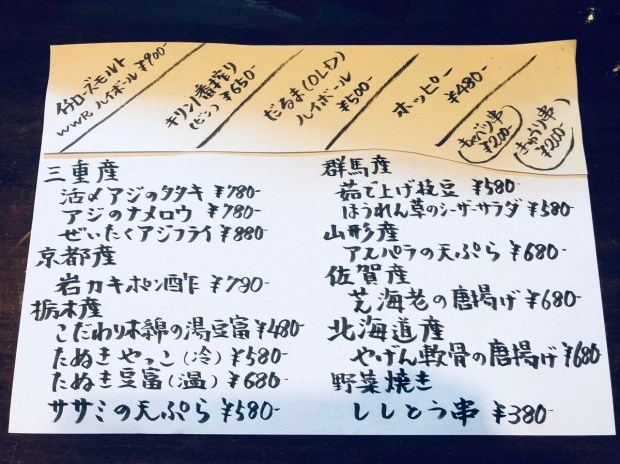 イチローズモルト
WWR ハイボール ¥900-
キリン一番搾り
(ビン) ¥650-
だるま(OLD)
ハイボール
¥500-
ホッピー
¥480-
キャベツ串
¥200-
きゅうり串
¥200-
三重産
活〆アジのタタキ ¥780-
アジのナメロウ ¥780-
ぜいたくアジフライ ¥880-
京都産
岩カキポン酢 ¥790-
栃木産
こだわり木綿の湯豆富 ¥480-
たぬきやっこ(冷) ¥580-
たぬき豆富(温) ¥680-
ササミの天ぷら ¥580-
群馬産
茹で上げ枝豆 ¥580-
ほうれん草のシーザーサラダ ¥580-
山形産
アスパラの天ぷら ¥680-
佐賀産
芝海老の唐揚げ ¥680-
北海道産
やげん軟骨の唐揚げ ¥680-
野菜焼き
ししとう串 ¥380-